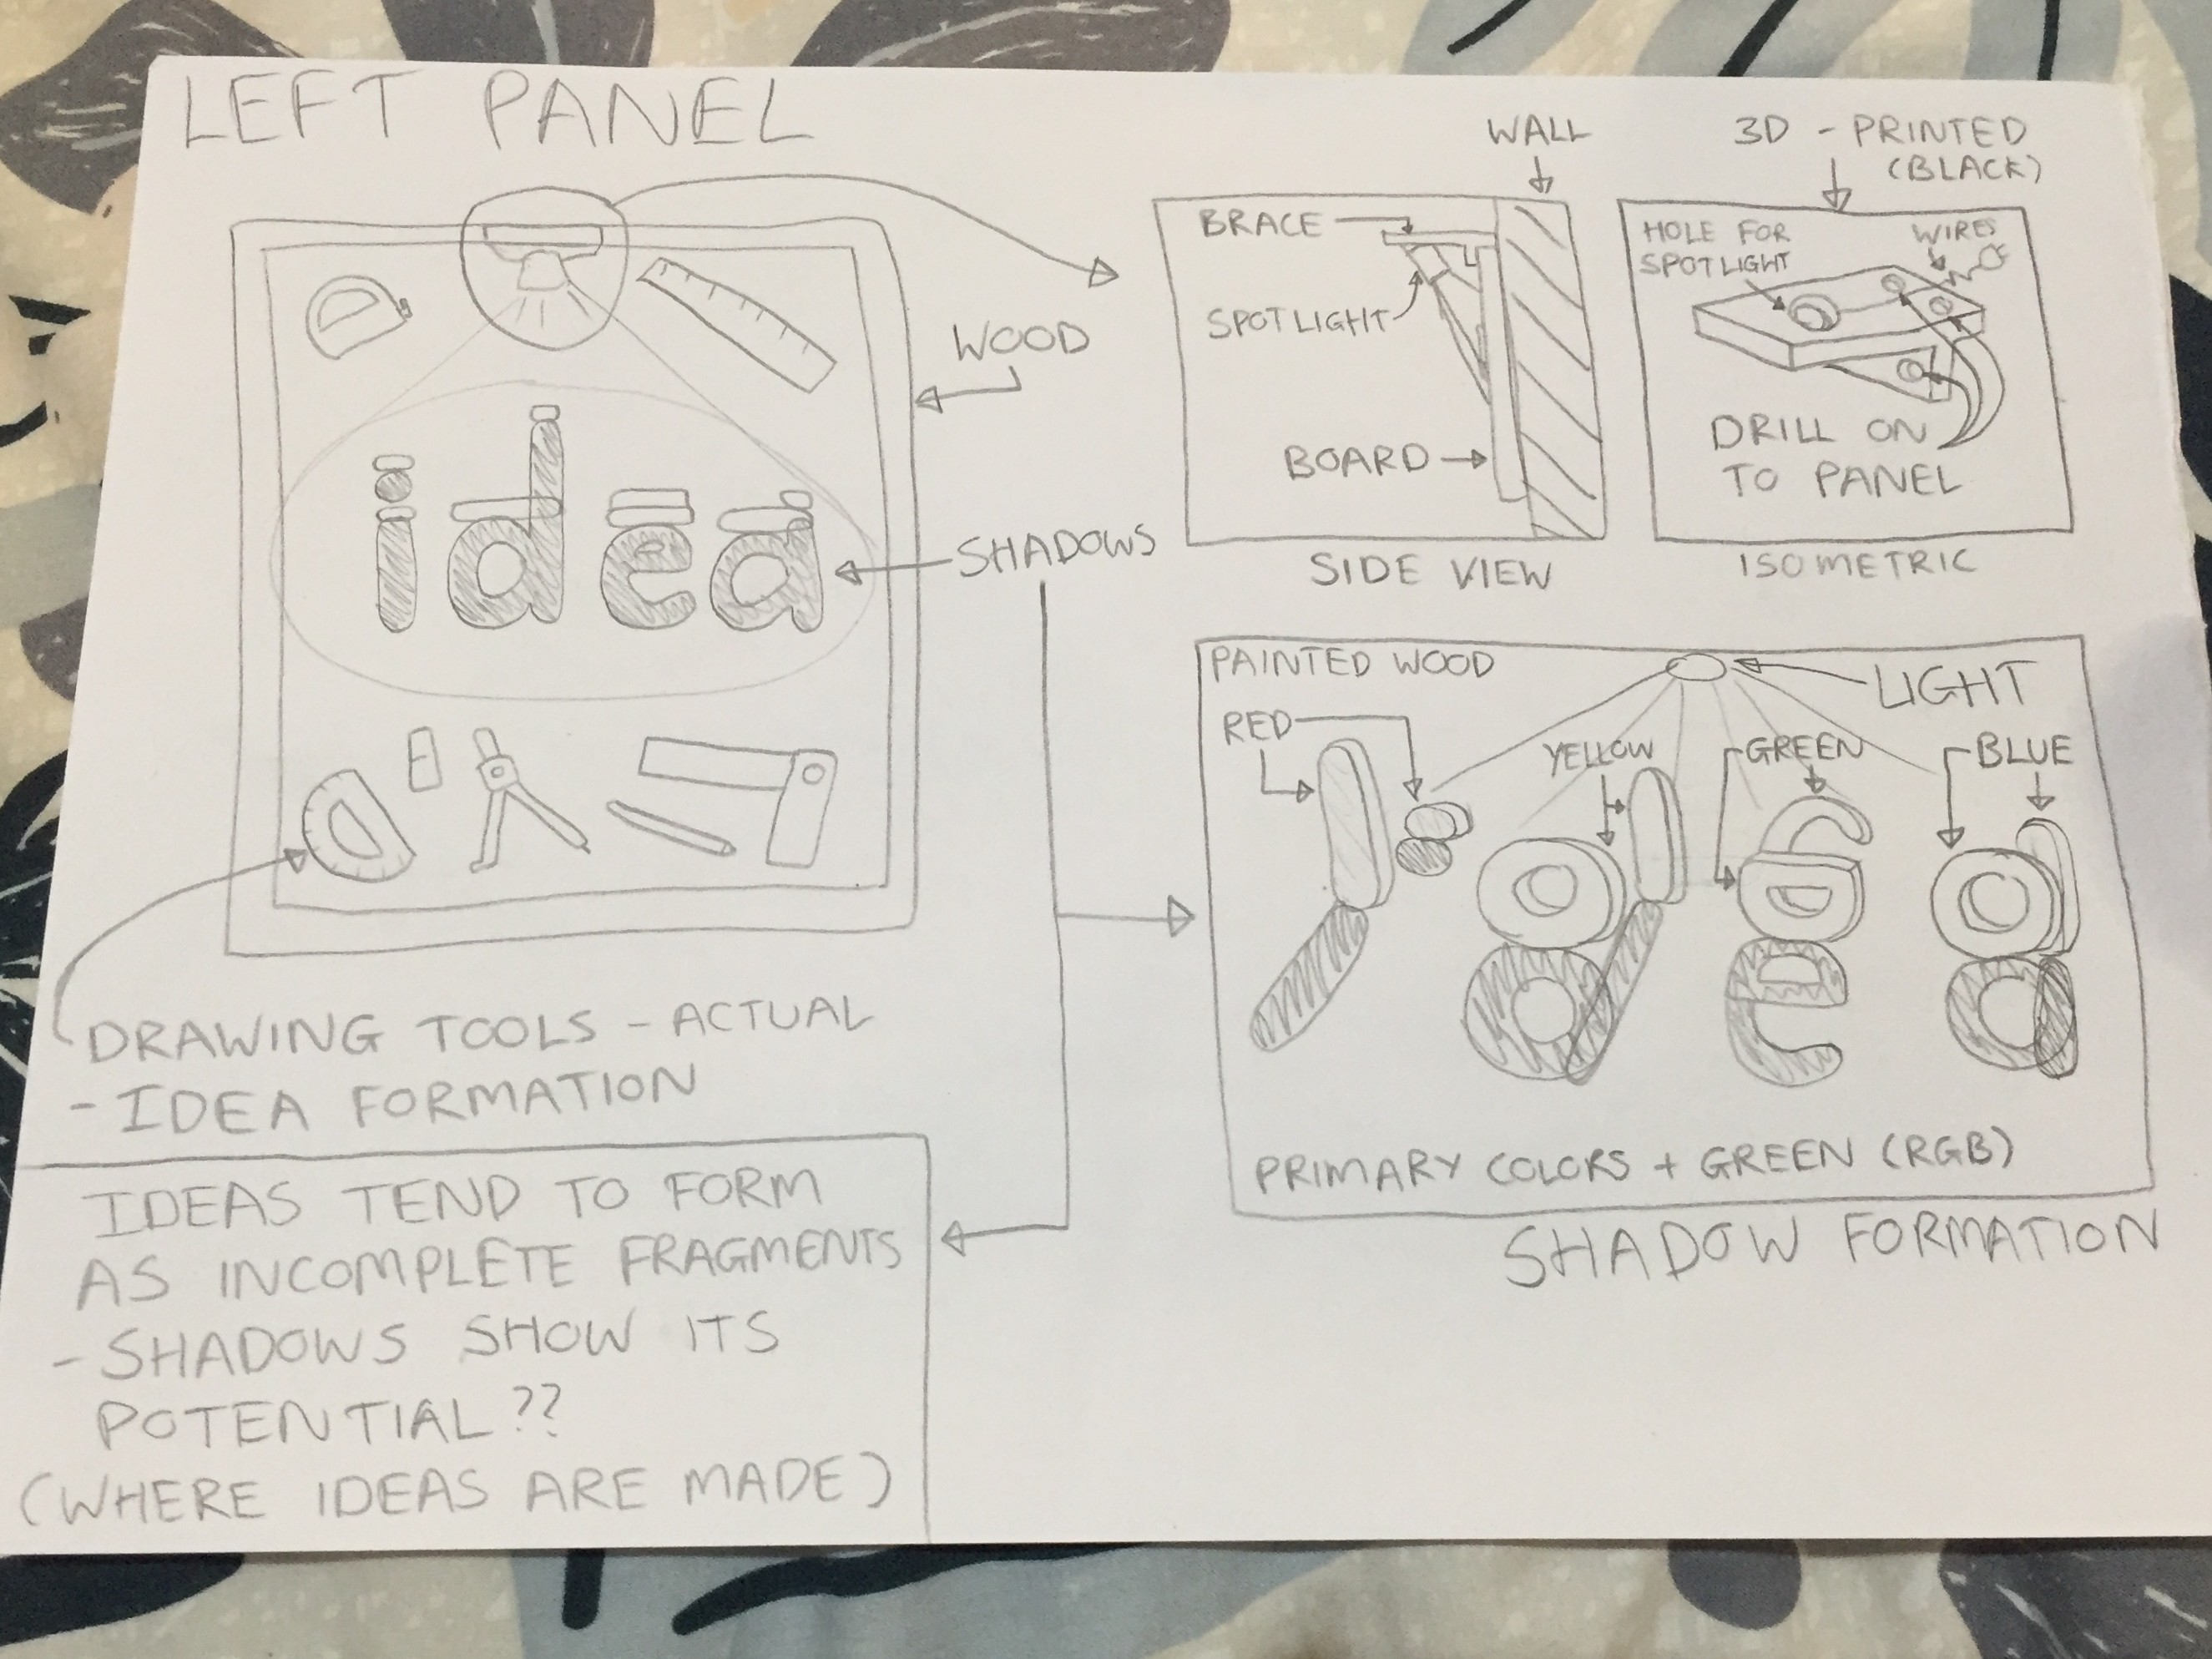 LEFT PANEL
idea
WOOD
SHADOWS
DRAWING TOOLS - ACTUAL
- IDEA FORMATION
IDEAS TEND TO FORM
AS INCOMPLETE FRAGMENTS
- SHADOWS SHOW ITS
POTENTIAL??
(WHERE IDEAS ARE MADE)
WALL
BRACE
SPOTLIGHT
BOARD
SIDE VIEW
3D - PRINTED
(BLACK)
HOLE FOR
SPOTLIGHT
WIRES
DRILL ON
TO PANEL
ISOMETRIC
PAINTED WOOD
LIGHT
RED
YELLOW
GREEN
BLUE
PRIMARY COLORS + GREEN (RGB)
SHADOW FORMATION